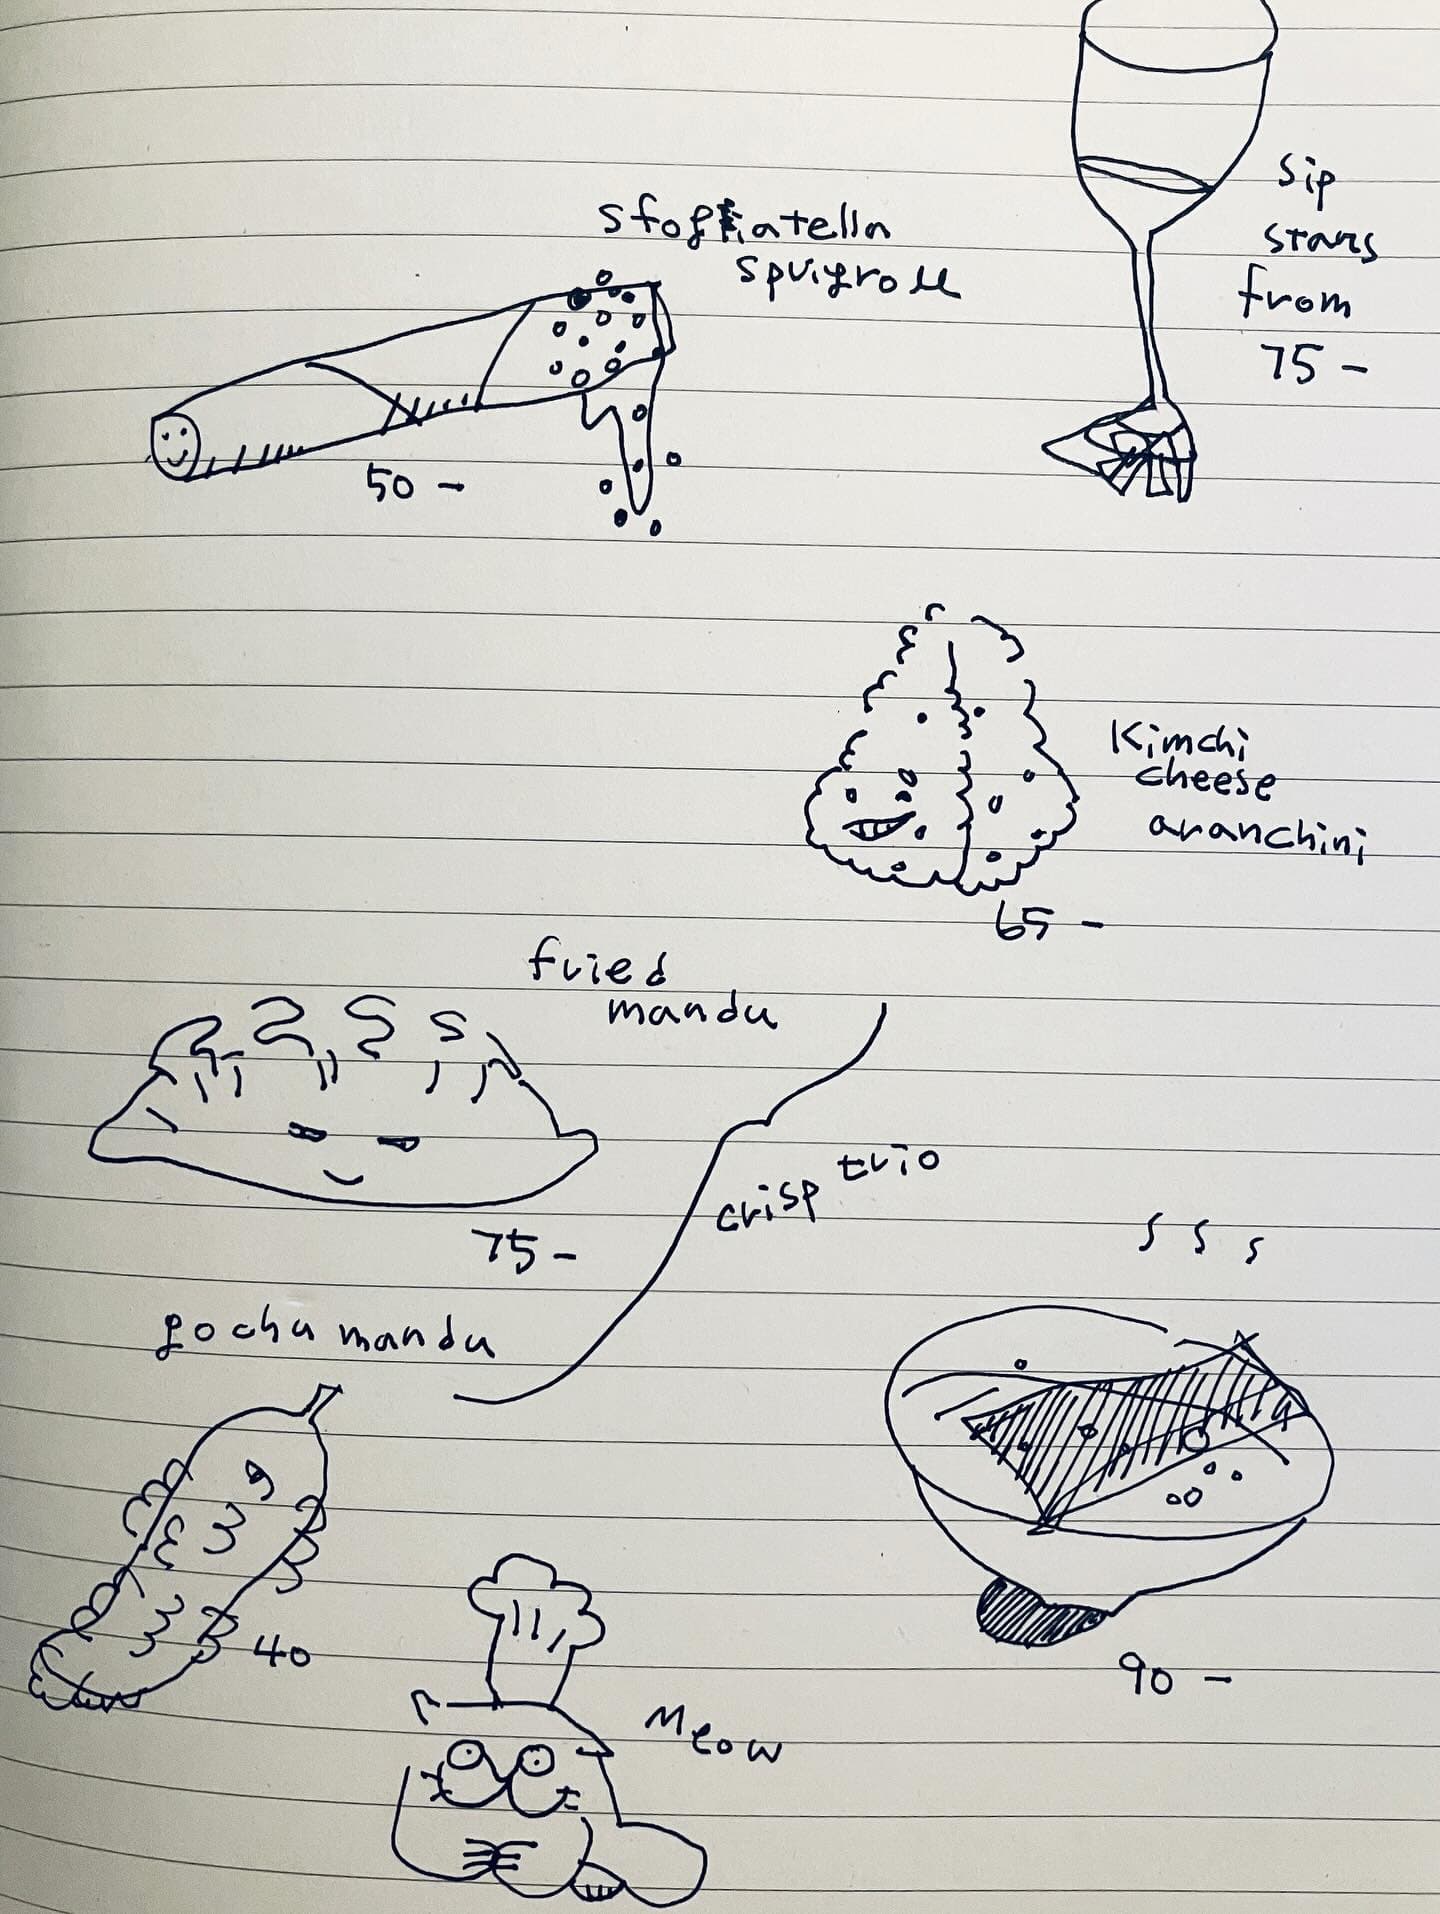 sfogliatella
sprigroll
50 -
Sip
stars
from
75 -
Kimchi
cheese
aranchini
65 -
fried
mandu
75 -
crisp trio
gochu mandu
40
90 -
Meow